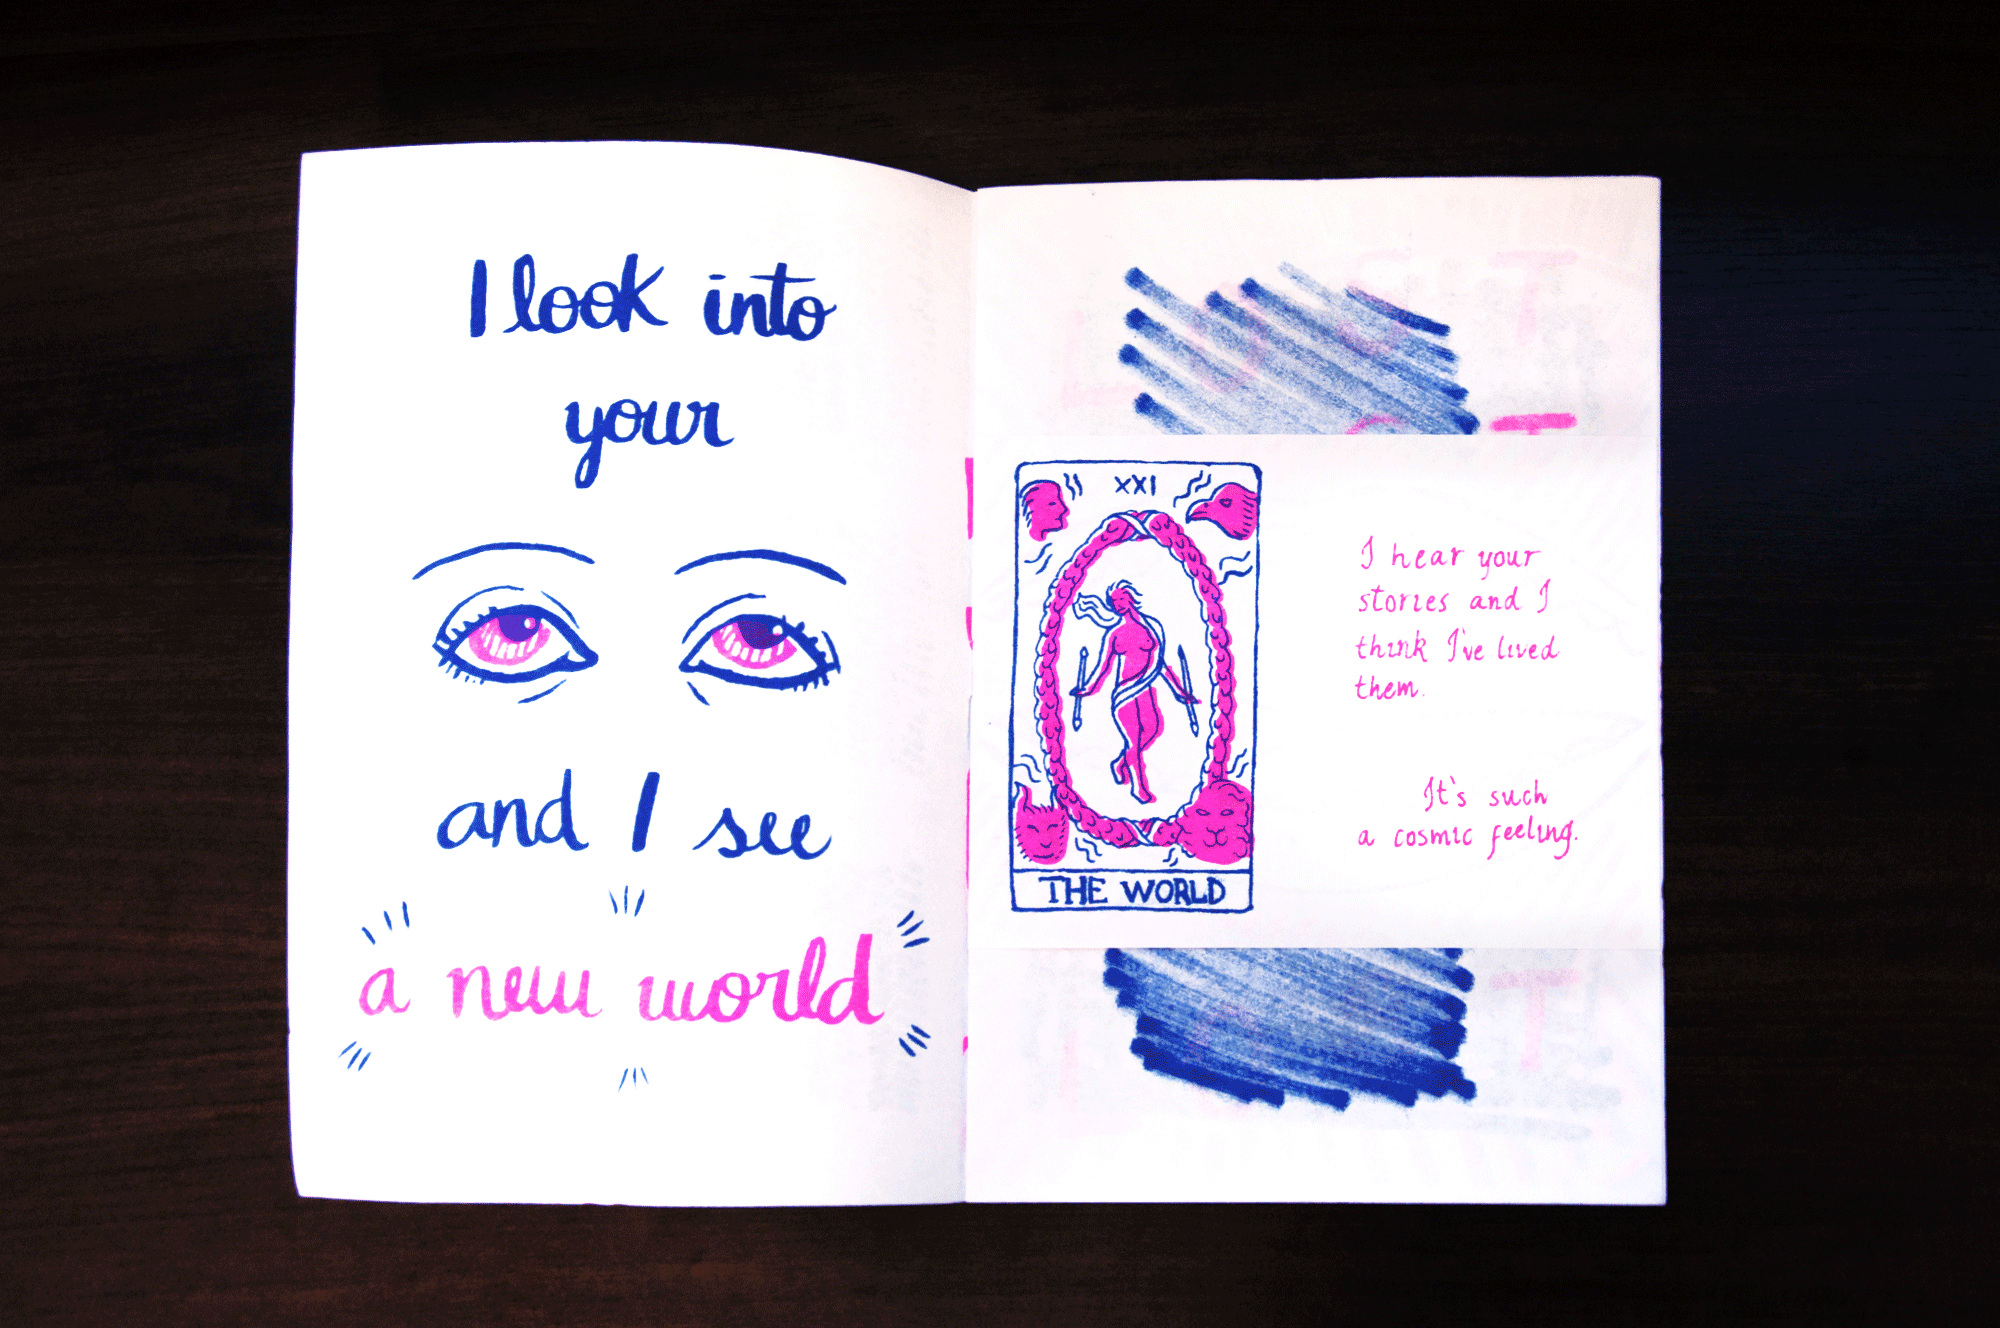 I look into
your
and I see
a new world
XXI
THE WORLD
I hear your
stories and I
think I've lived
them.
It's such
a cosmic feeling.